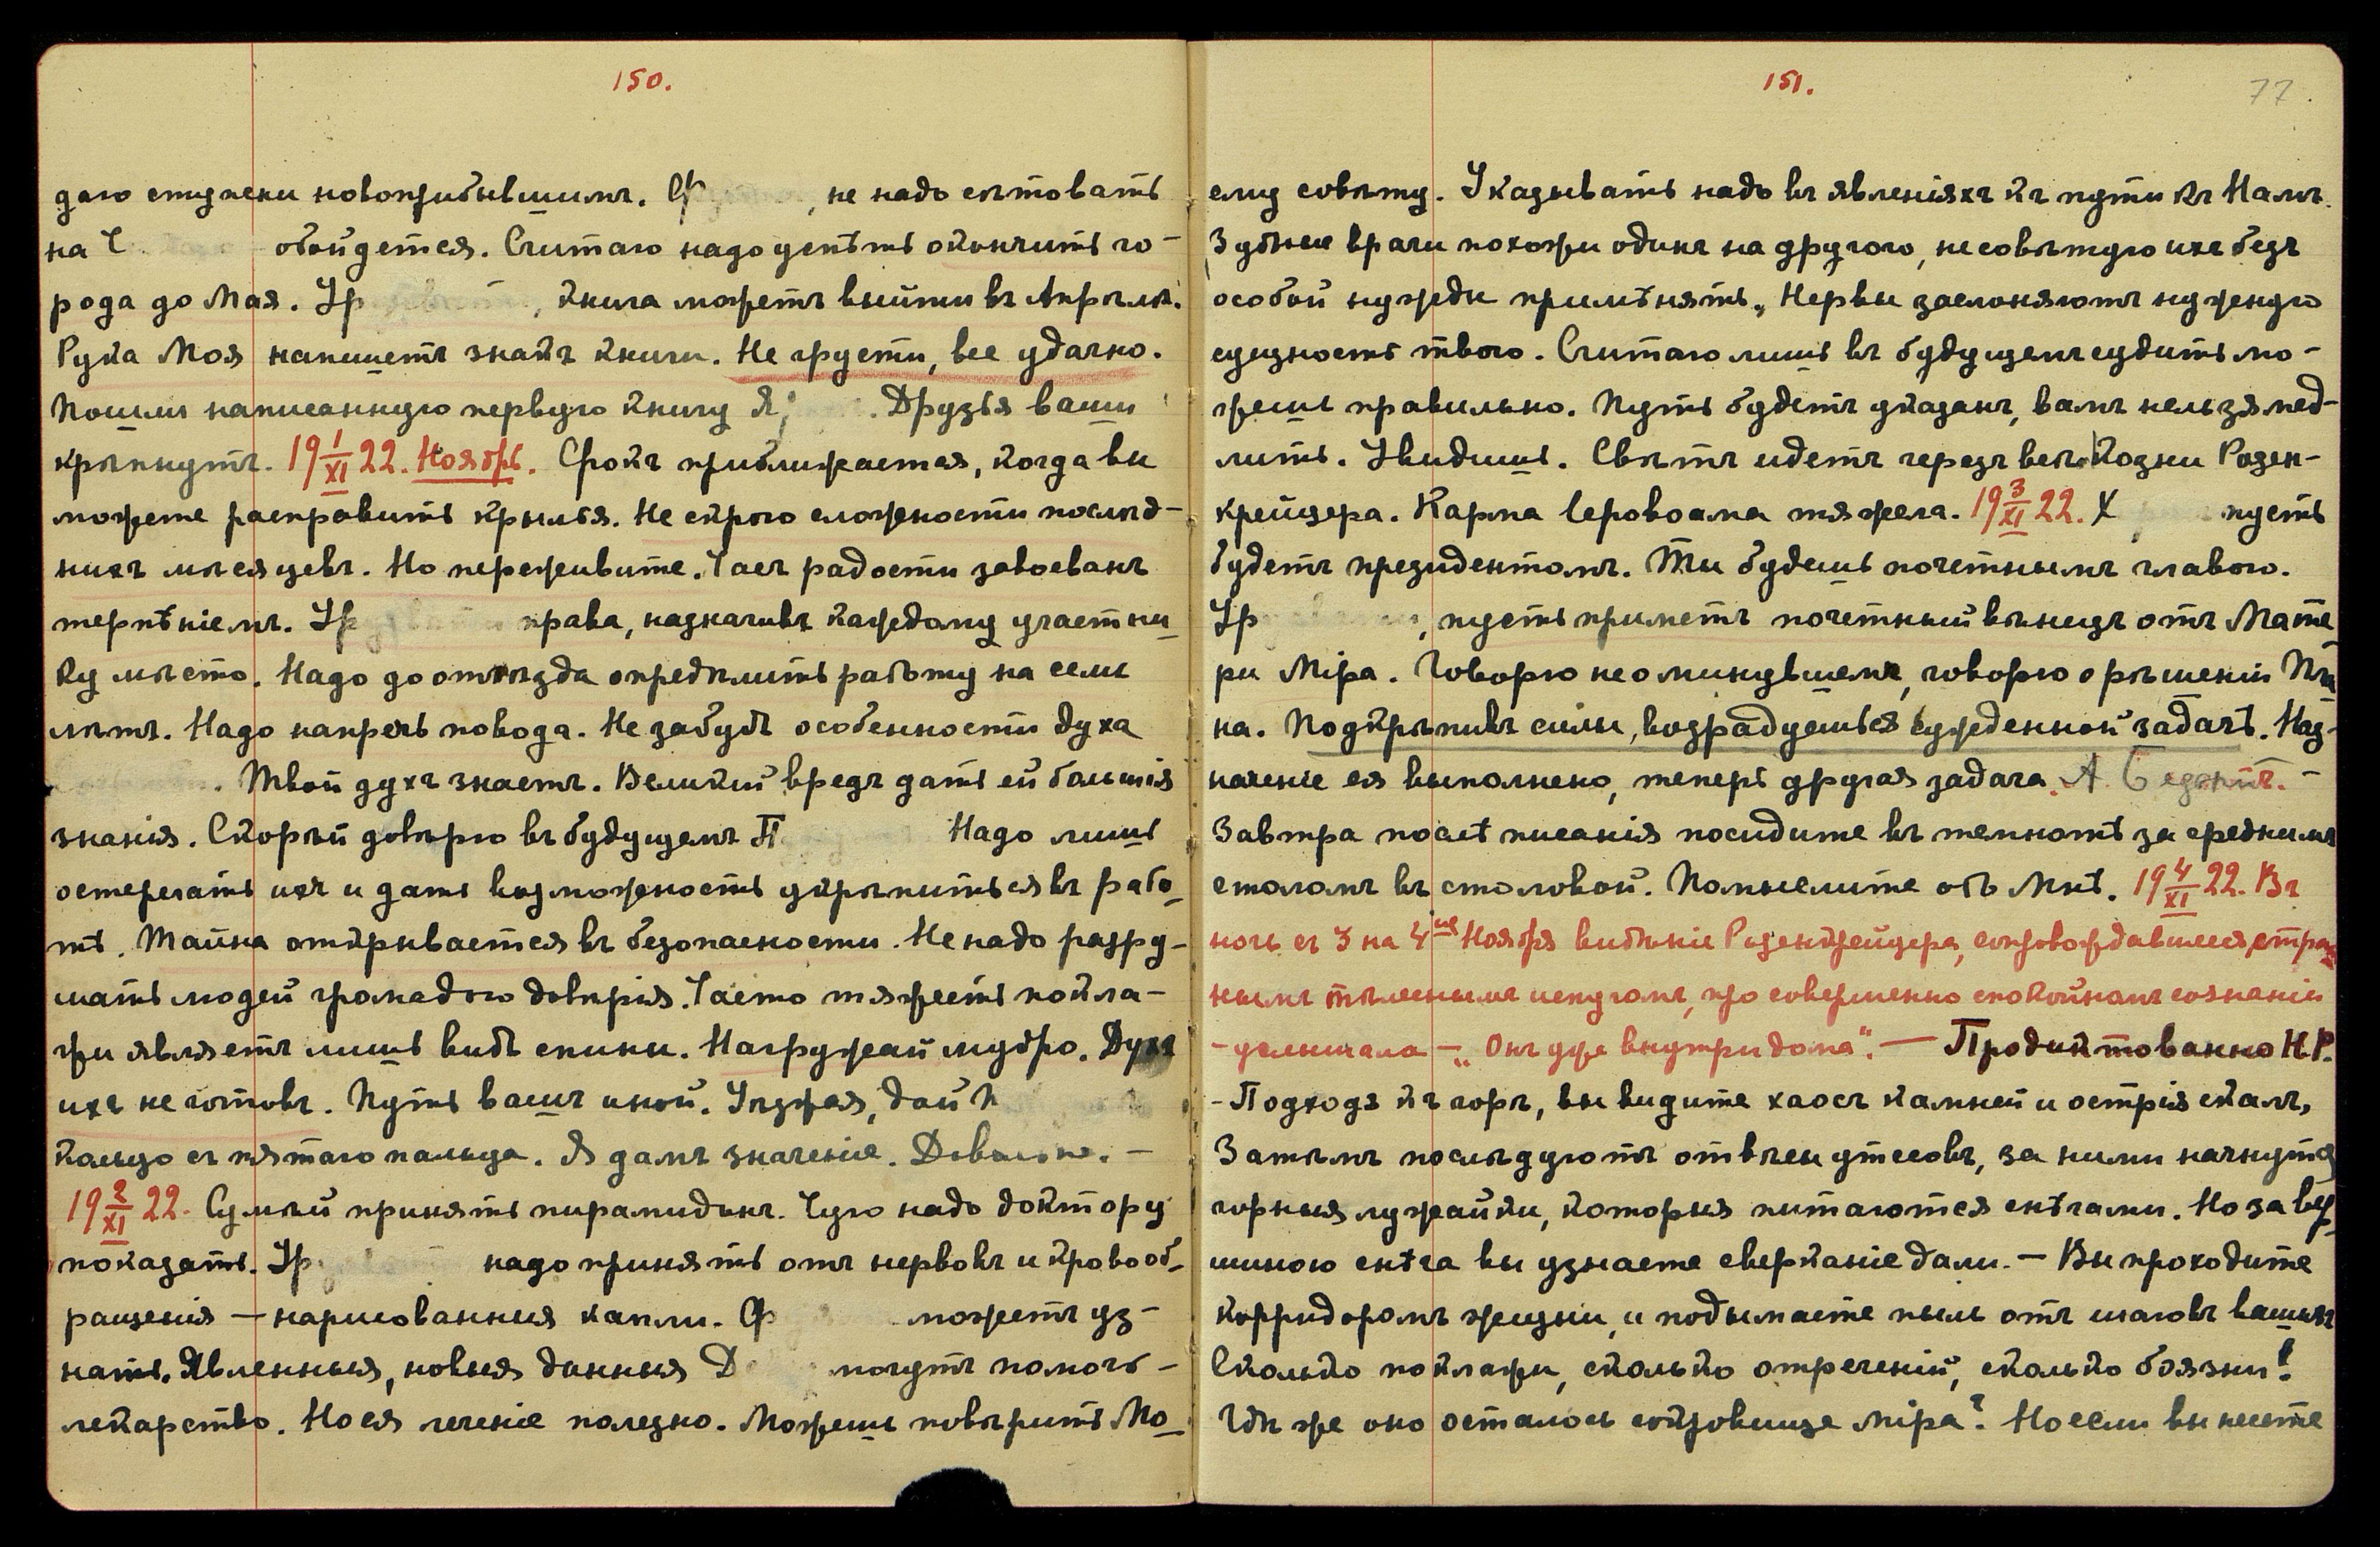 150.
даю ступени новоприбывшимъ. Ф , не надо сѣтовать
на С обойдется. Считаю надо успѣть окончить го-
рода до Мая. Ур , книга можетъ выйти въ Апрѣлѣ.
Рука Моя напишетъ знакъ книги. Не грусти, все удачно.
Пошли написанную первую книгу Я . Друзья ваши
крѣпнутъ. 19 1/XI 22. Ноябрь. Срокъ приближается, когда вы
можете расправить крылья. Не скрою сложности послѣд-
нихъ мѣсяцевъ. Но переживите. Часъ радости завоеванъ
терпѣніемъ. Ур права, назначивъ каждому участни-
ку мѣсто. Надо до отъѣзда опредѣлить работу на семь
лѣтъ. Надо напречь повода. Не забудь особенности духа
. Твой духъ знаетъ. Великій вредъ дать ей большія
знанія. Скорѣй довѣрю въ будущемъ П Надо лишь
остерегать ихъ и дать возможность укрѣпиться въ рабо-
тѣ. Тайна открывается въ безопасности. Не надо разру-
шать людей громадою довѣрія. Часто тяжесть покла-
жи являетъ лишь видъ спины. Нагружай мудро. Духъ
ихъ не готовъ. Путь вашъ иной. Уѣзжая, дай
кольцо съ пятаго пальца. Я дамъ значеніе. Довольно. –
19 2/XI 22. Сумѣй принять пирамидонъ. Чую надо доктору
показать. Ур надо принять отъ нервовъ и кровооб-
ращенія – нарисованныя капли. Ф можетъ уз-
нать. Явленныя, новыя данныя Д могутъ помочь –
лекарство. Но ея леченіе полезно. Можешь повѣрить Мо-
151.
77.
ему совѣту. Указывать надо въ явленіяхъ къ пути къ Намъ.
Зубные врачи похожи одинъ на другого, не совѣтую ихъ безъ
особой нужды примѣнять. Нервы заслоняютъ нужную
сущность твою. Считаю лишь въ будущемъ судить мо-
жешь правильно. Путь будетъ указанъ, вамъ нельзя мед-
лить. Увидишь. Свѣтъ идетъ черезъ всѣ козни Розен-
крейцера. Карма Іеровоама тяжела. 19 3/XI 22. Х пусть
будетъ президентомъ. Ты будешь почетнымъ главою.
Ур , пусть приметъ почетный вѣнецъ отъ Мате
ри Міра. Говорю не о минувшемъ, говорю о рѣшеніи Пла
на. Подкрѣпивъ силы, возрадуешься сужденной задачѣ. Наз-
наченіе ея выполнено, теперь другая задача. А. –
Завтра послѣ писанія посидите въ темнотѣ за среднимъ
столомъ въ столовой. Помыслите объ Мнѣ. 19 4/XI 22. Въ
ночь съ 3 на 4ое Ноября видѣніе Розенкрейцера, сопровождавшееся страш
нымъ тѣлеснымъ испугомъ, при совершенно спокойномъ сознаніи
– услышала – „Онъ уже внутри дома". – Продиктованно Н.Р.
– Подходя къ горѣ, вы видите хаосъ камней и острія скалъ,
Затѣмъ послѣдуютъ отвѣсы утесовъ, за ними начнутся
горныя лужайки, которыя питаются снѣгами. Но за вер
шиною снѣга вы узнаете сверканіе дали. – Вы проходите
корридоромъ жизни, и подымаете пыль отъ шаговъ вашихъ
Сколько поклажи, сколько отреченій, сколько боязни!
Гдѣ же оно осталось сокровище міра? Но если вы несете